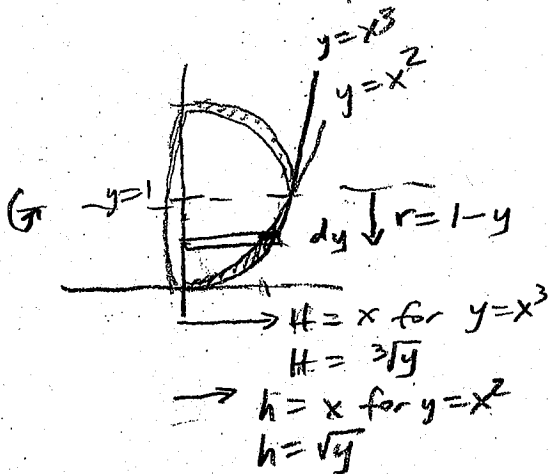 y=x³
y=x²
G y=1
dy ↓ r=1-y
→ H = x for y=x³
H = ³√y
→ h = x for y=x²
h=√y